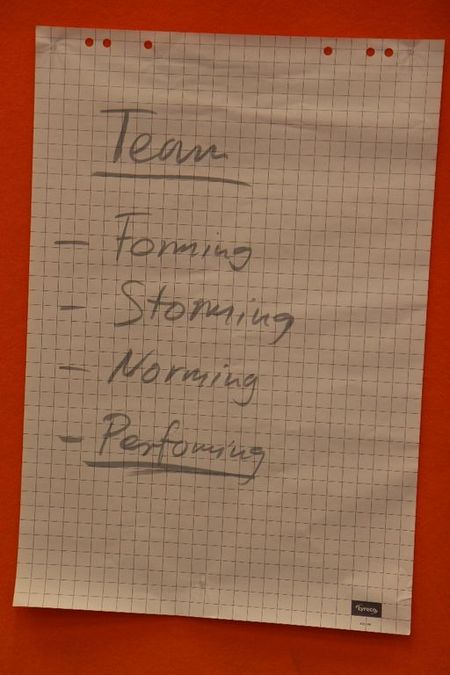 Team
- Forming
- Storming
- Norming
- Perfoming